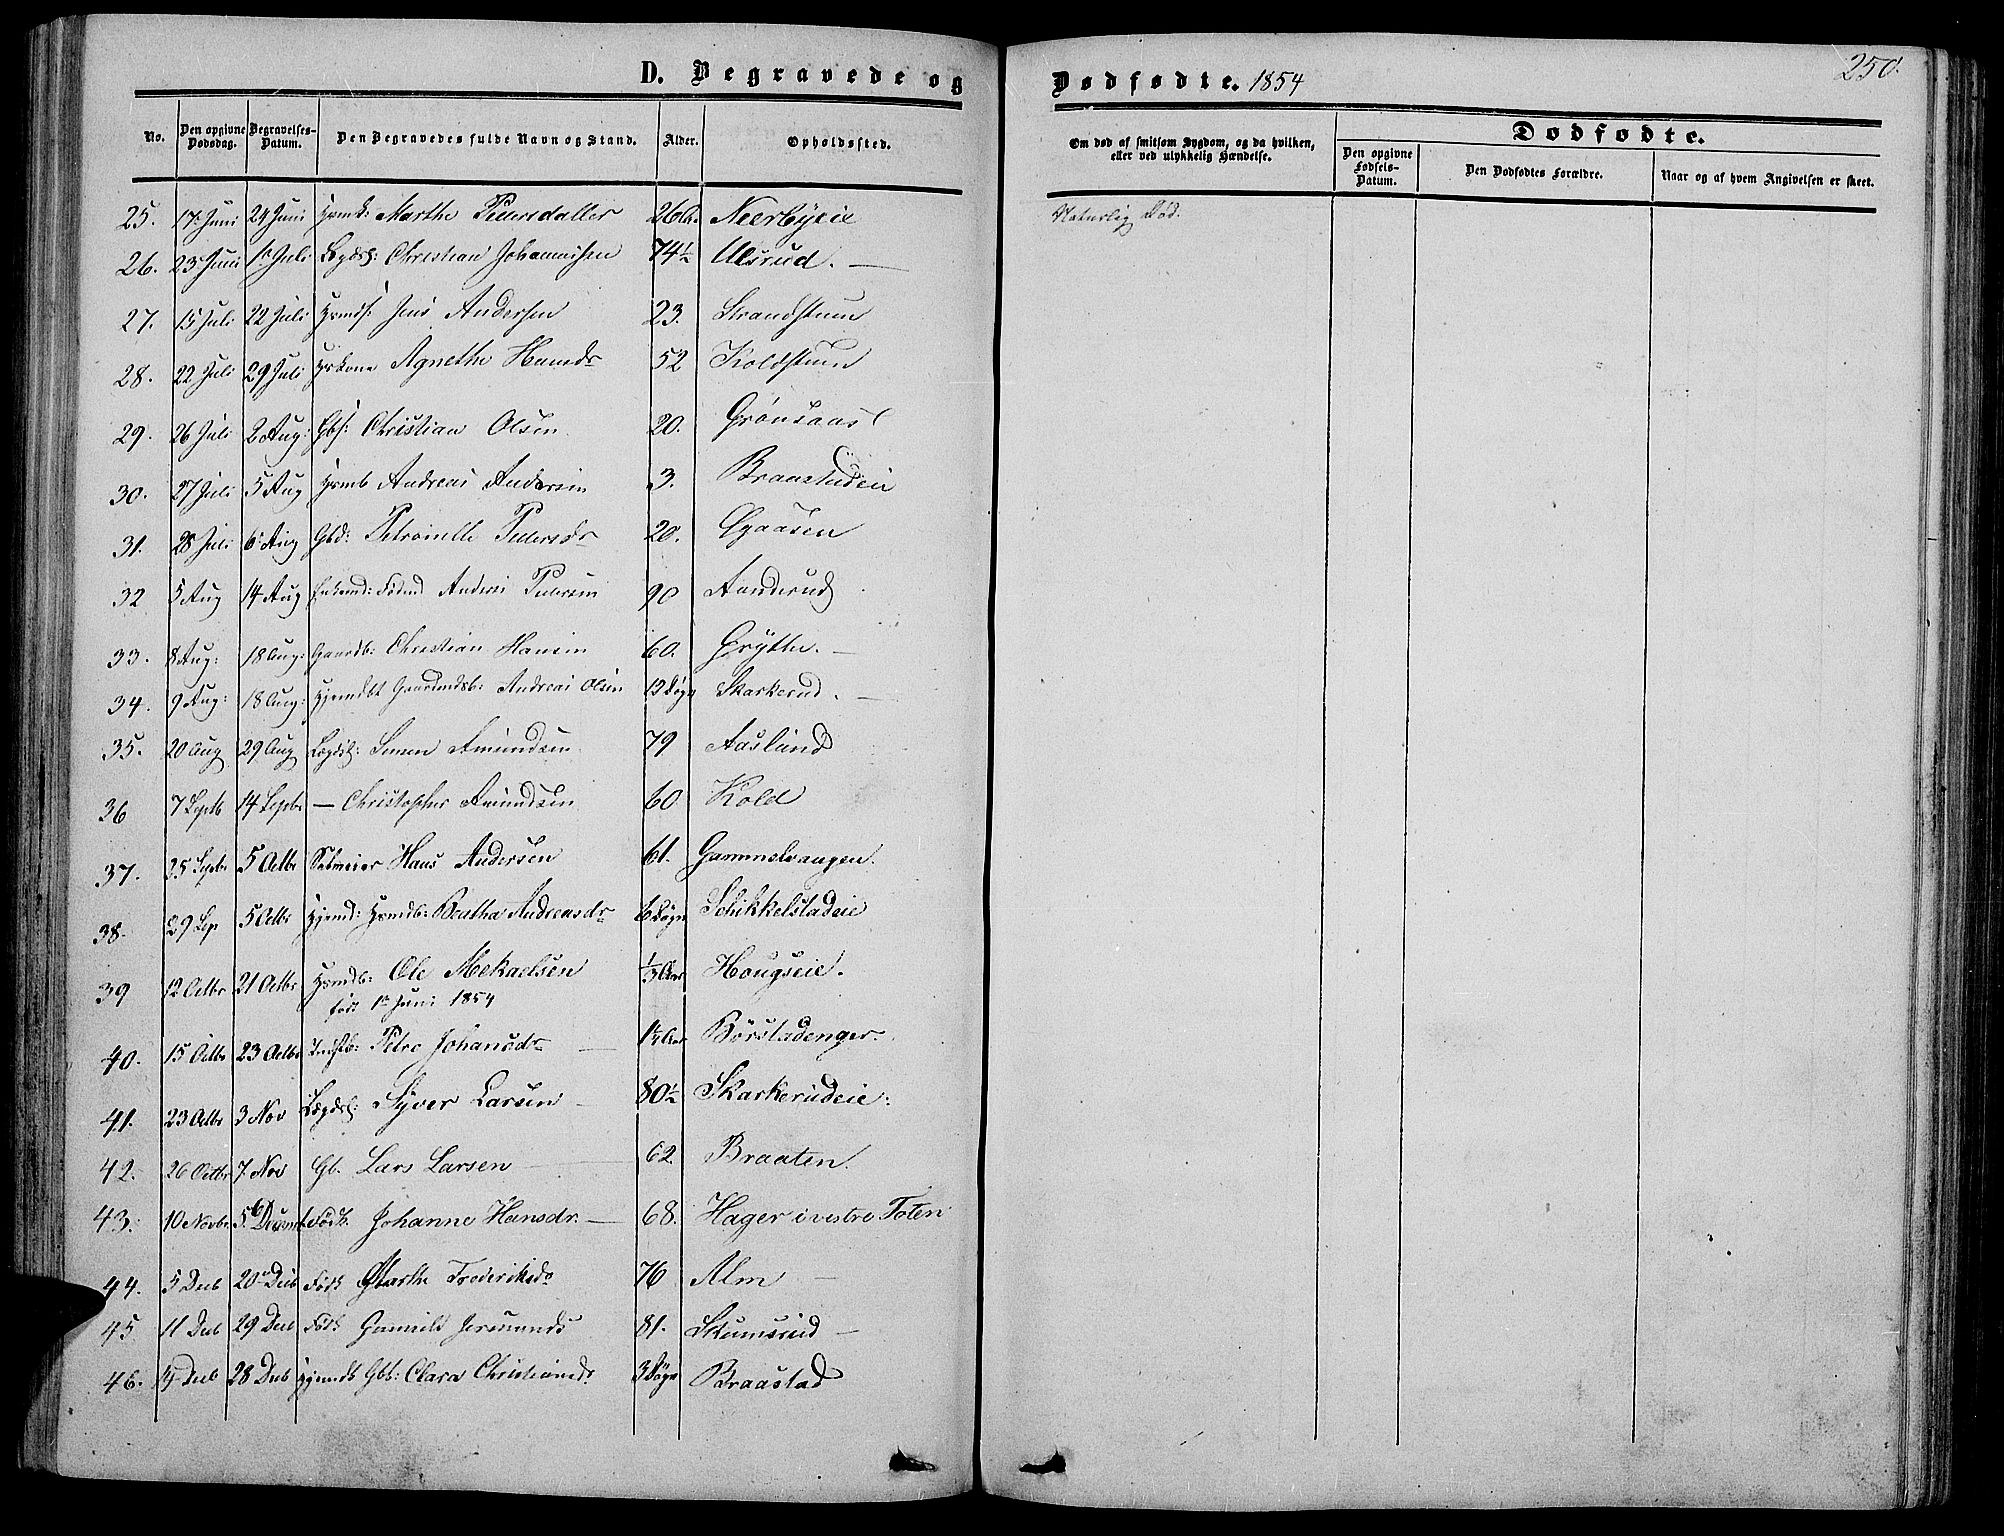 D. Begravede og
Dødfødte. 1854
250.
No.
Den opgivne Dødsdag.
Begravelses-Datum.
Den Begravedes fulde Navn og Stand.
Alder.
Opholdssted.
Om død af smitsom Sygdom, og da hvilken, eller ved ulykkelig Hændelse.
Dødfødte.
Den opgivne Fødsels-Datum.
Den Dødfødtes Forældre.
Naar og af hvem Angivelsen er skeet.
25. 17. Juni 24 Juni Marthe Pedersdatter 26 Neerbyeie Naturlig Død.
26. 23 Juni 1 Juli Lægdsl: Christian Johannissen 74½ Ulsrud. —
27. 15 Juli 22 Juli Jens Andersen 23.
28. 22 Juli 29 Juli Agnethe Hansdr 52
29. 26 Juli 2 Aug: Christian Olsen 20.
30. 27 Juli 5 Aug Andreas Andersen 3.
31. 28 Juli 6 Aug Gbd: Petronille Pedersdr 20.
32 5 Aug 14 Aug Anders Pedersen 90 Aanderud
33. 8 Aug: 18 Aug: Gaardb: Christian Hansen 60. Grytte. —
34. 9 Aug: 18 Aug: Hjemdbt Gaardmdsb: Andreas Olsen 12 Døgn Skarkerud. —
35. 20 Aug 29 Aug Lægdsl: Simen Amundsen 79 Aaslund
36 7 Septb 14 Septbr — Christopher Amundsen 60 Kold
37. 25 Septbr 5 Octbr Hans Andersen 61. Gammelvangen.
38. 29 Sep 5 Octbr Hjemd: Hsmdb: Bertha Andreasdr 6 Døgn Schikkelstadeie
39 12 Octbr 21 Octbr Hsmdb: Ole Mekaelsen ⅓ Aar Hougseie.
født 1 Juni 1854
40. 15 Octbr 23 Octbr Indstb: Petra Johansdr — 1½ Aar Børstadenger.
41. 23 Octbr 3 Nov Lægdsl: Syver Larsen — 80½ Skarkerudeie.
42. 26 Octbr 7. Nov Gb. Lars Larsen — 62. Braaten.
43. 10 Novbr Johanne Hansdr. — 68. Hager i vestre Toten
44. 5 Decb 20 Decb Marthe Frederiksdr 76 Alm —
45 11 Decb 29 Decb Gunnild 81. Skumsrud —
46. 28 Decb Hjemdb Gbb: Clara Christiansdr 3 Døgn Braastad